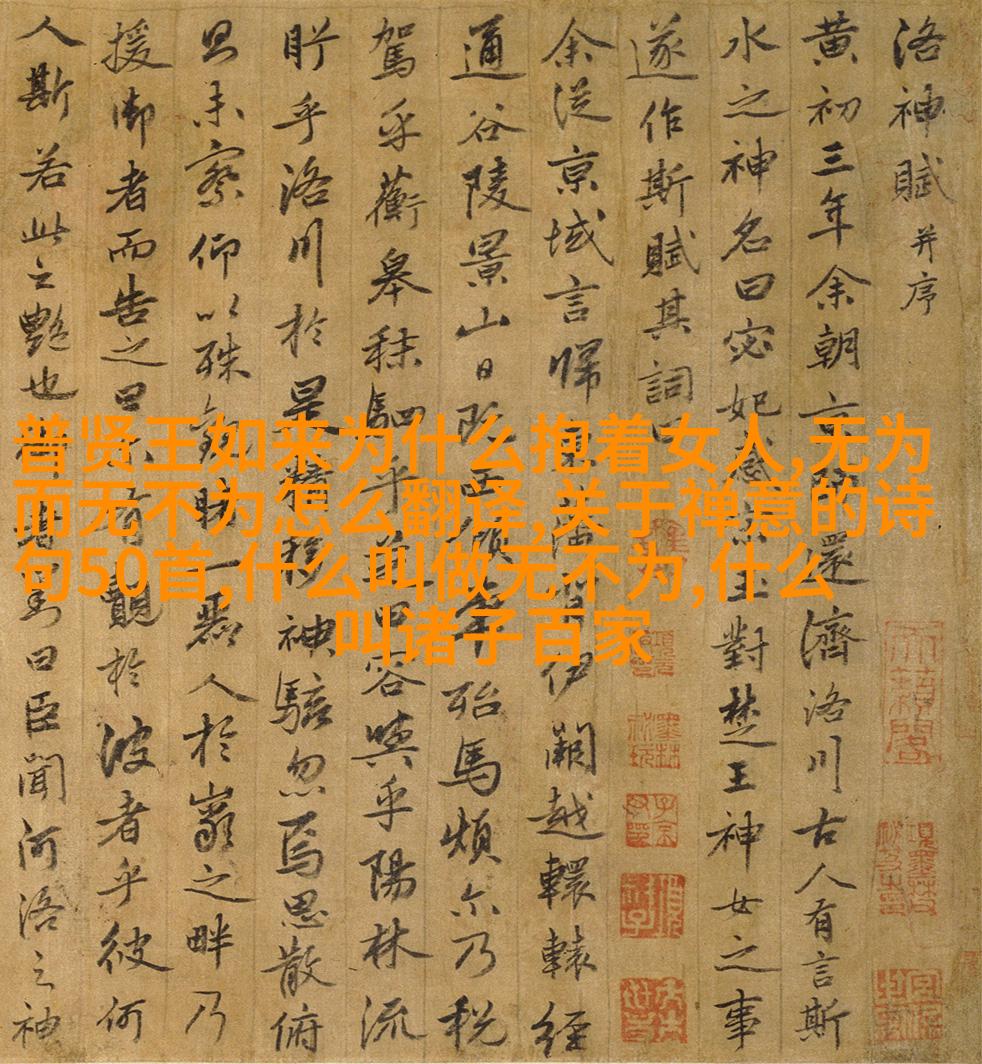 洛神賦并序
黄初三年余朝京師還濟洛川古人有言斯
水之神名曰宓妃感宋玉對楚王神女之事
遂作斯賦其詞曰
余從京域言歸東藩背伊闕越轘轅經
通谷陵景山日既西傾車殆馬煩尓乃税
駕乎蘅皋秣駟乎芝田容與乎陽林流
眄乎洛川於是精移神駭忽焉思散俯
則未察仰以殊觀睹一麗人於巖之畔乃
援御者而告之曰尓有覿於彼者乎彼何
人斯若此之艷也御者對曰臣聞河洛之神
普贤王如来为什么抱着女人,无为
而无不为怎么翻译,关于禅意的诗
句50首,什么叫做无不为,什么
叫诸子百家